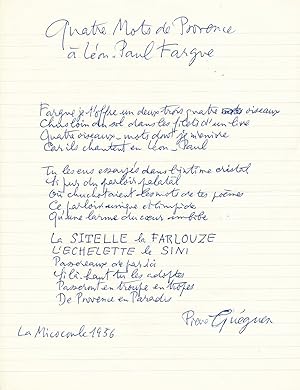 Quatre Mots de Provence
à Léon-Paul Fargue
Fargue je t'offre un deux trois quatre oiseaux
Chds loin du sol dans les filets d'un livre
Quatre oiseaux-mots dont je m'enivre
Car ils chantent en Léon-Paul
Tu les eus essayés dans l'intime cristal
Si pur du parloir palatal
Où couchetaient les mots de tes poèmes
Ce parloir unique et timide
Qu'une larme du cœur imbibe
La SITELLE la FARLOUZE
L'ECHELETTE le SINI
Passereaux de par ici
Si là-haut tu les adoptes
Passeront en troupe en tropes
De Provence en Paradis
La Micocoule 1956
Pierre Guéguen